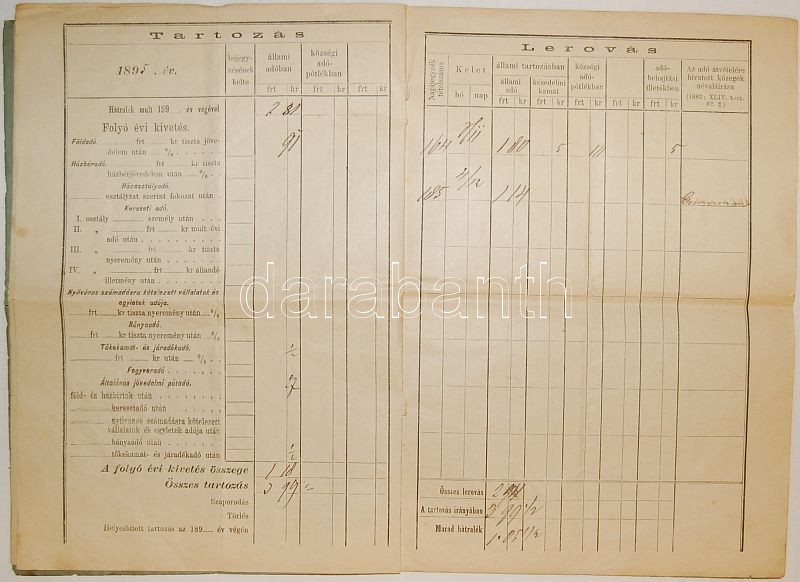 Tartozás
1895. év.
bejegy-
zésének
kelte
állami
adóban
községi
adó-
pótlékban
frt kr frt kr frt kr
Hátralék mult 189 . év végével
2 81
Folyó évi kivetés.
Földadó. frt kr tiszta jöve-
delem után %
91
Házbéradó. frt kr tiszta
házbérjövedelem után %
Házosztályadó.
osztályzat szerint fokozat után
Kereseti adó.
I. osztály személy után
II. " frt kr mult évi
adó után
III. " frt kr tiszta
nyeremény után
IV. " frt kr állandó
illetmény után
Nyilvános számadásra kötelezett vállalatok és
egyletek adója.
frt kr tiszta nyeremény után %
Bányaadó.
frt kr tiszta nyeremény után %
Tőkekamat- és járadékadó.
frt kr után %
Fegyveradó
Általános jövedelmi pótadó.
föld- és házbirtok után
keresetadó után
nyilvános számadásra kötelezett
vállalatok és egyletek adója után
bányaadó után
tőkekamat- és járadékadó után
A folyó évi kivetés összege
1 18
Összes tartozás
3 99 ½
Szaporodás
Törlés
Helyesbitett tartozás az 189 év végén
Lerovás
Naplójegyzék
tételszáma
Kelet
hó nap
állami tartozásban
állami
adó
késedelmi
kamat
községi
adó-
pótlékban
adó-
behajtási
illetékben
Az adó átvételére
hivatott közegek
névaláirása
(1883: XLIV. t.-cz.
42. §.)
frt kr frt kr frt kr frt kr frt kr
164 1 80 5 10 5
185 4/12 1 14
Összes lerovás
2 94
A tartozás irányában
3 99 ½
Marad hátralék
1 05 ½
darabanth